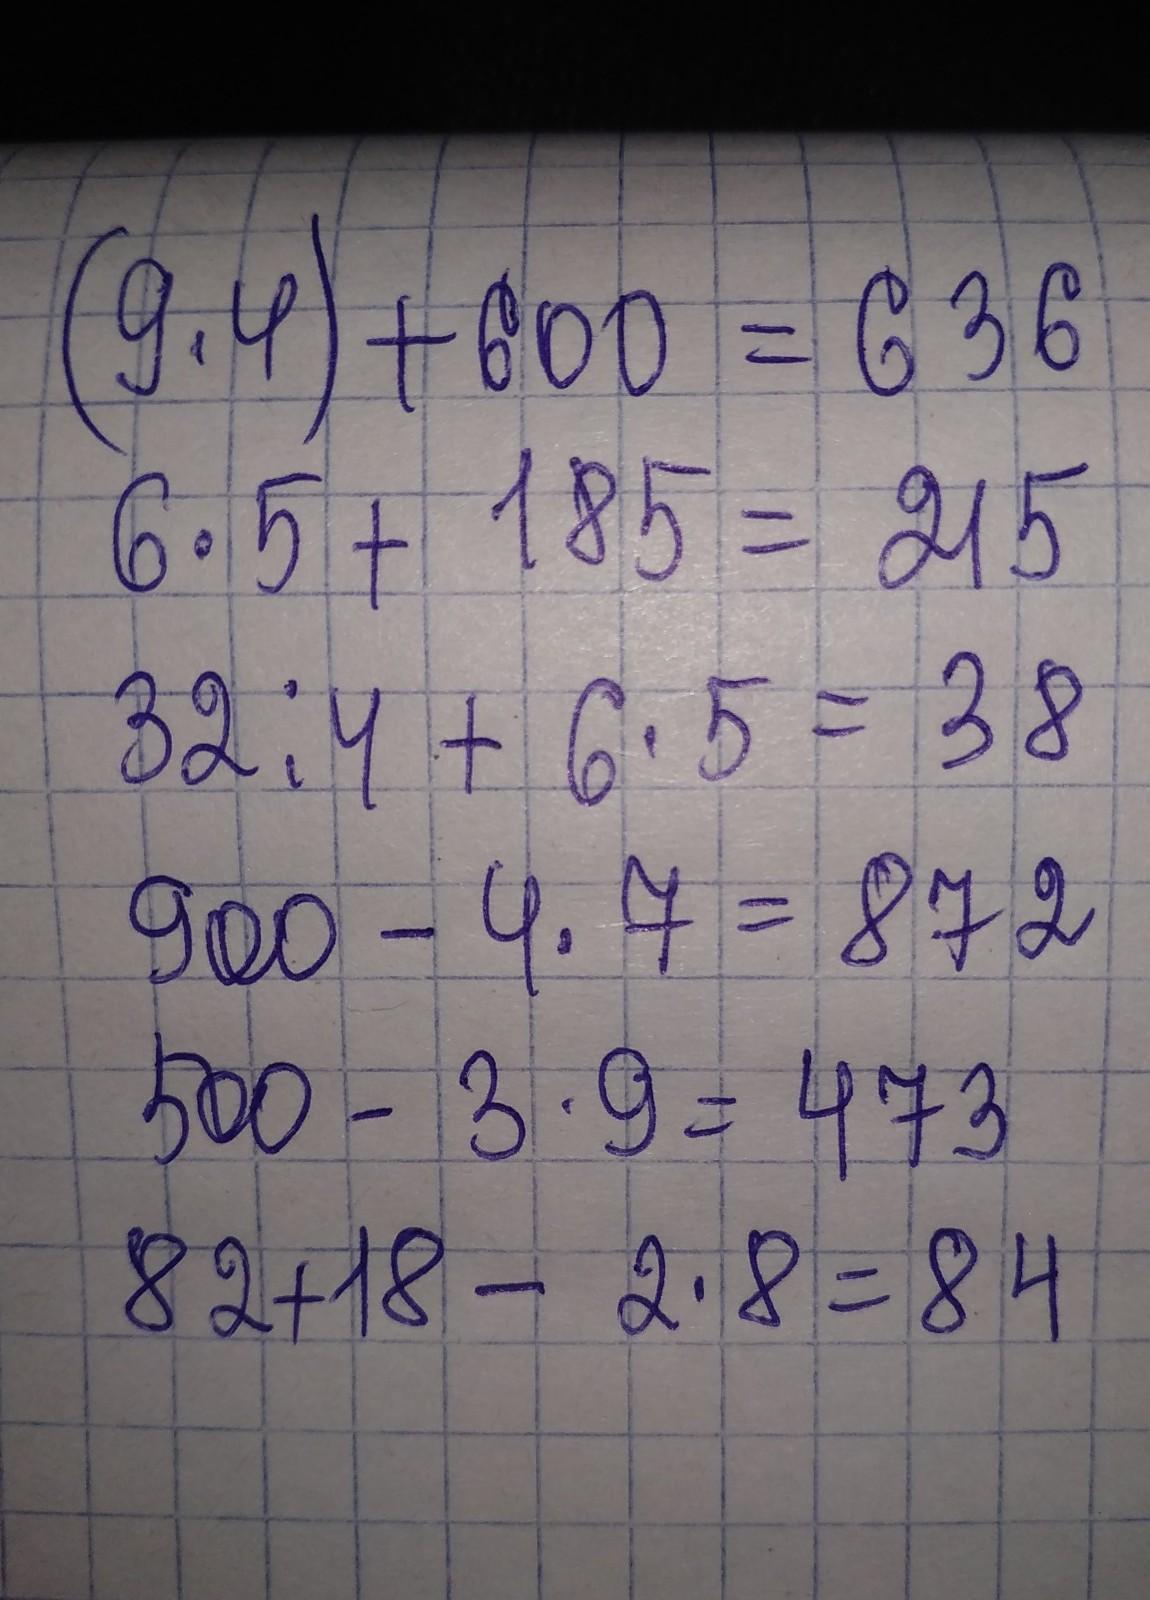 (9·4)+600 = 636
6·5+ 185 = 215
32:4 + 6·5 = 38
900 - 4·7 = 872
500 - 3·9 = 473
82+18 - 2·8 = 84